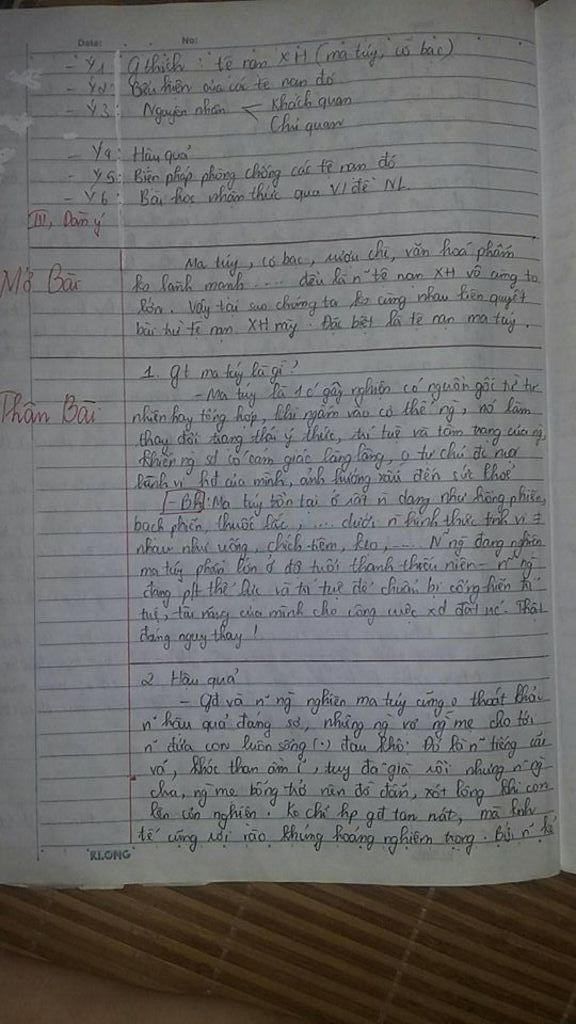 Date: No:
- Ý1: Gthích: tệ nạn XH (ma túy, cờ bạc)
- Ý2: Biểu hiện của các tệ nạn đó
- Ý3: Nguyên nhân < Khách quan
Chủ quan
- Ý4: Hậu quả
- Ý5: Biện pháp phòng chống các tệ nạn đó
- Ý6: Bài học nhận thức qua vđề NL
III, Dàn ý
Mở Bài
Ma túy, cờ bạc, rượu chè, văn hoá phẩm
ko lành mạnh .... đều là n~ tệ nạn XH vô cùng to
lớn. Vậy tại sao chúng ta ko cùng nhau kiên quyết
bài trừ tệ nạn XH này. Đặc biệt là tệ nạn ma túy.
Thân Bài
1. gt ma túy là gì?
- Ma túy là 1 c' gây nghiện có nguồn gốc từ tự
nhiên hay tổng hợp, khi ngấm vào cơ thể ng, nó làm
thay đổi trạng thái ý thức, trí tuệ và tâm trạng của ng,
khiến ng sd có cảm giác lâng lâng, o tự chủ đc mọi
hành vi hđ của mình, ảnh hưởng xấu đến sức khoẻ
- Bh: Ma túy tồn tại ở rất n` dạng như hồng phiến,
bạch phiến, thuốc lắc, ... dưới n` hình thức tinh vi ≠
nhau như uống, chích, tiêm, kẹo, .... N~ ng đang nghiện
ma túy phần lớn ở độ tuổi thanh thiếu niên - n~ ng
đang ptr thể lực và trí tuệ để chuẩn bị cống hiến trí
tuệ, tài năng của mình cho công cuộc xd đất nc. Thật
đáng nguy thay!
2 Hậu quả
- Gđ và n~ ng nghiện ma túy cũng o thoát khỏi
n~ hậu quả đáng sợ, những ng vợ ng mẹ cho tới
n~ đứa con luôn sống (.) đau khổ. Đó là n~ tiếng cãi
vã, khóc than ầm ĩ, tuy đã già rồi nhưng n~ ng
cha, ng mẹ bỗng trở nên đờ đẫn, xót lòng khi con
lên cơn nghiện. Ko chỉ hp gđ tan nát, mà kinh
tế cũng rơi vào khủng hoảng nghiêm trọng. Bởi n~
KLONG